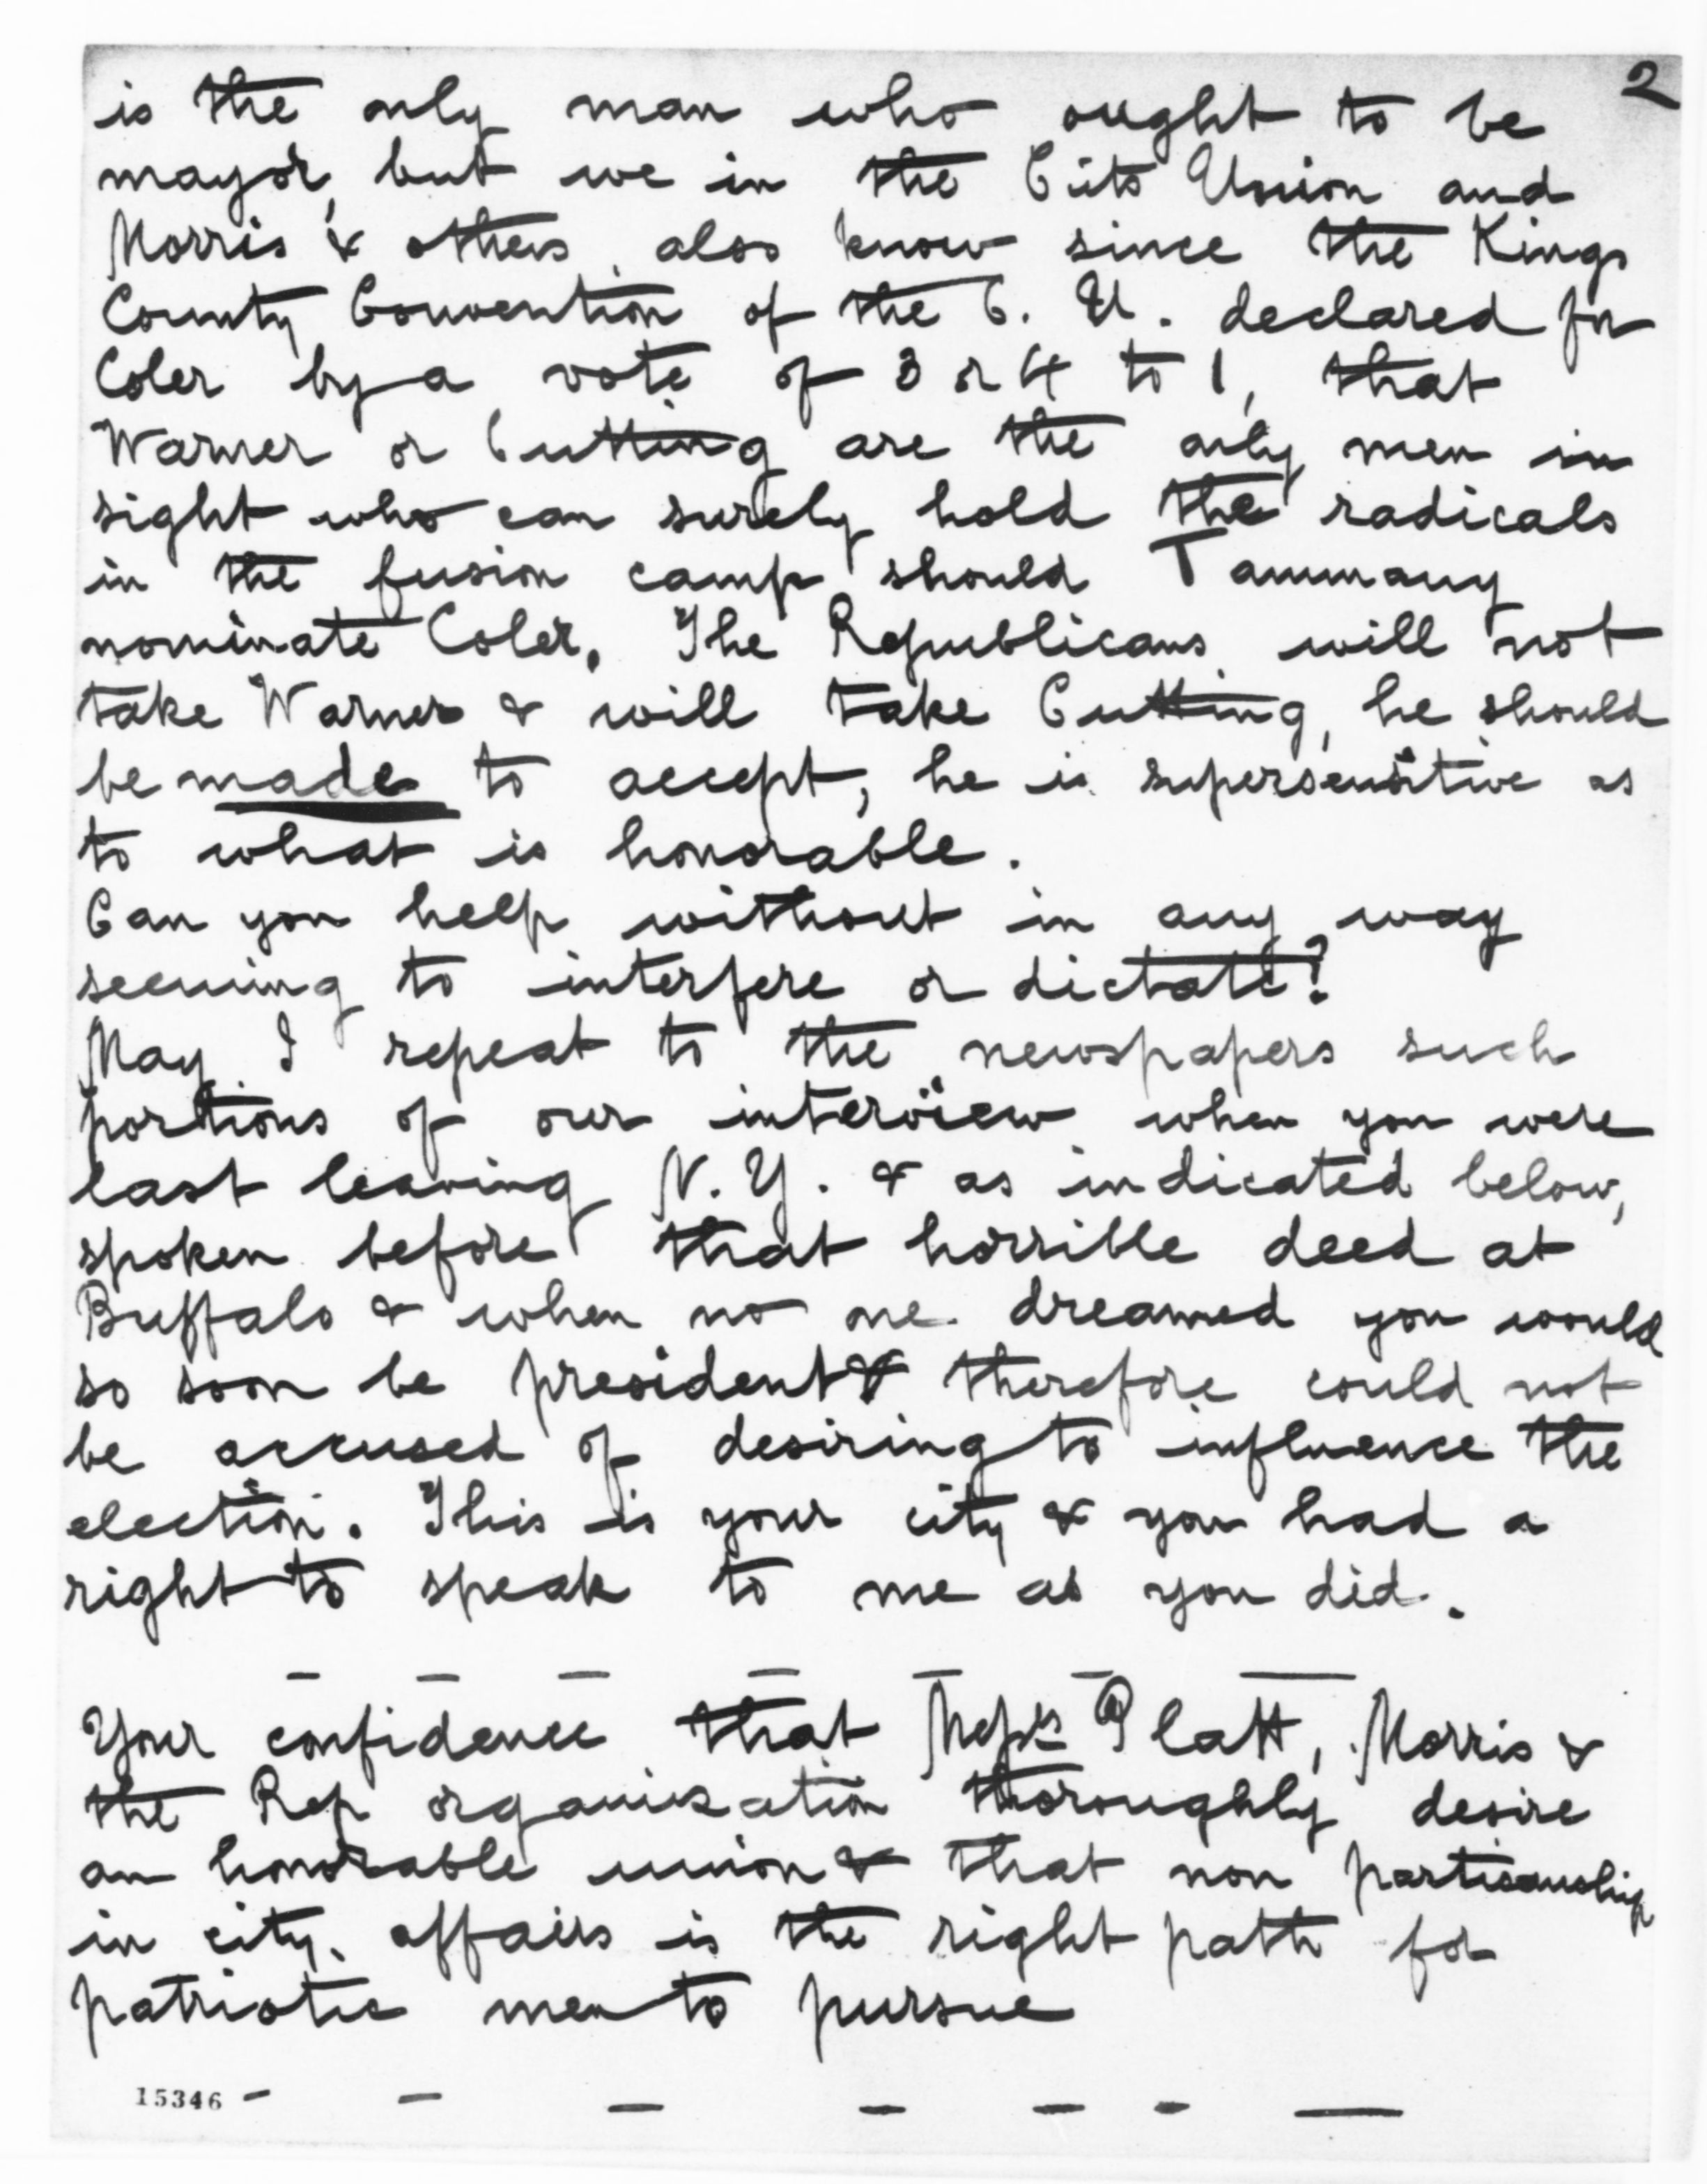 2
is the only man who ought to be
mayor, but we in the Cits Union and
Morris & others also know since the Kings
County Convention of the C. U. declared for
Coler by a vote of 3 or 4 to 1, that
Warner or Cutting are the only men in
sight who can surely hold the radicals
in the fusion camp should Tammany
nominate Coler. The Republicans will not
take Warner & will take Cutting, he should
be made to accept, he is supersensitive as
to what is honorable.
Can you help without in any way
seeming to interfere or dictate?
May I repeat to the newspapers such
portions of our interview when you were
last leaving N. Y. & as indicated below,
spoken before that horrible deed at
Buffalo & when no one dreamed you would
so soon be president & therefore could not
be accused of desiring to influence the
election. This is your city & you had a
right to speak to me as you did.
Your confidence that Platt, Morris &
the Rep organization thoroughly desire
an honorable union & that non partisanship
in city affairs is the right path for
patriotic men to pursue
15346